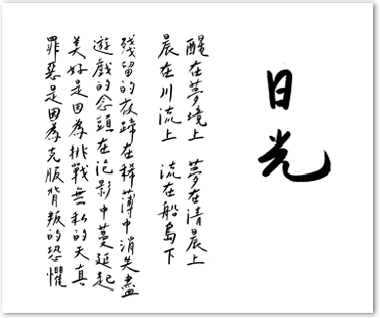 日光
醒在夢境上 夢在清晨上
晨在川流上 流在船島下
殘留的夜蹄在稀薄中消失盡
遊戲的念頭在泡影中蔓延起
美好是因為挑戰無私的天真
罪惡是因為克服背叛的恐懼